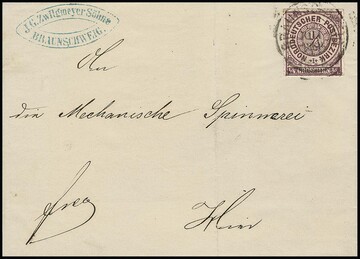 J. G. Zwilgmeyer Söhne
BRAUNSCHWEIG.
NORDDEUTSCHER POSTBEZIRK
An
die Mechanische Spinnerei
frco
Hier